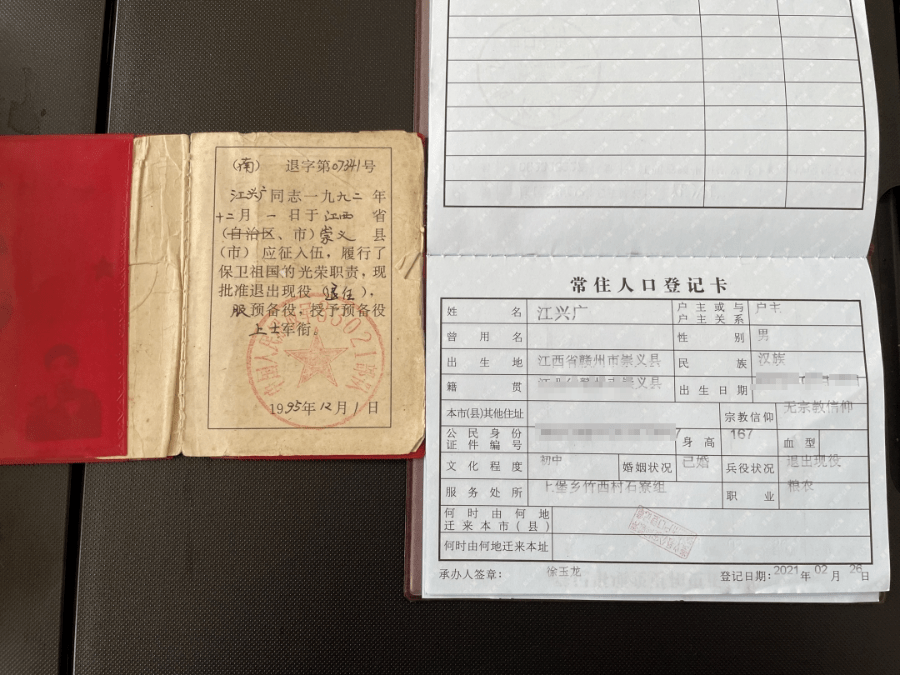 (南) 退字第07341号
江兴广同志一九九二年
十二月一日于江西省
(自治区、市)崇义县
(市)应征入伍，履行了
保卫祖国的光荣职责，现
批准退出现役(退伍)，
服预备役，授予预备役
上士军衔。
1995年12月1日
常住人口登记卡
姓名 江兴广 户主或与户主关系 户主
曾用名 性别 男
出生地 江西省赣州市崇义县 民族 汉族
籍贯 江西省赣州市崇义县 出生日期
本市(县)其他住址 宗教信仰 无宗教信仰
公民身份证件编号 7 身高 167 血型
文化程度 初中 婚姻状况 已婚 兵役状况 退出现役
服务处所 上堡乡竹西村石寮组 职业 粮农
何时由何地迁来本市(县)
何时由何地迁来本址
承办人签章： 徐玉龙 登记日期：2021年02月26日